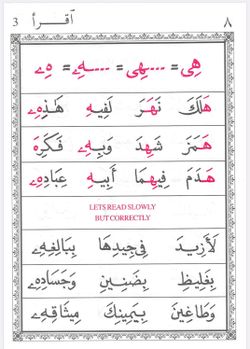 ٨ اقرأ 3
هِى = ....ـهِى = ....ـهِۦ = هِۦ
هَلَكَ نَهَرَ لَفِيهِ هَـٰذِهِۦ
هَمَزَ شَهِدَ وَبِهِۦ فَكَرِهَ
هَدَمَ فِيهِمَا أَبِيهِ عِبَادِهِۦ
LETS READ SLOWLY
BUT CORRECTLY
لَأَزِيدَ فِى جِيدِهَا بِبَالِغِهِۦ
بِغَلِيظِ بِضَنِينِ
وَطَاغِينَ بِيَمِينِكَ مِيثَاقِهِۦ